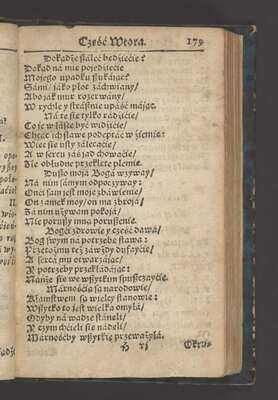 Część Wtora. 179
Dokądże szaleć będziecie?
Dokąd na mię pojedziecie
Mojego upadku szukając?
Sami/ jako płot zachwiany/
Abo jak mur rozerwany/
W rychle y strasznie upaść mając.
Na to sie tylko radzicie/
Co je w łasce być widzicie/
Chcąc ich sławę podeptać w ziemię:
Wiec sie usty zalecacie/
A w sercu zaś jad chowacie/
Złe obłudne przeklęte plemię.
Duszo moja Boga wzyway/
Na nim samym odpoczyway:
Onci sam jest moje zbawienie/
On zamek moy/ on ma zbroja/
Za nim używam pokoja/
Nie poruszy mną poruszenie.
Bogci zdrowie y cześć dawa/
Bog swym na potrzebę stawa:
Przetoż mu też zawżdy dufaycie/
A serca mu otwarzając/
Y potrzeby przekładając:
Nańże sie we wszytkim spuszczaycie.
Marnością są narodowie/
Kłamstwem są wielcy stanowie:
Wszytko to jest wielka omyła/
Gdyby na wadze staneli/
Y z czym chcieli sie ważeli/
Marnośćby wszytkie przeważyła.
Okrut